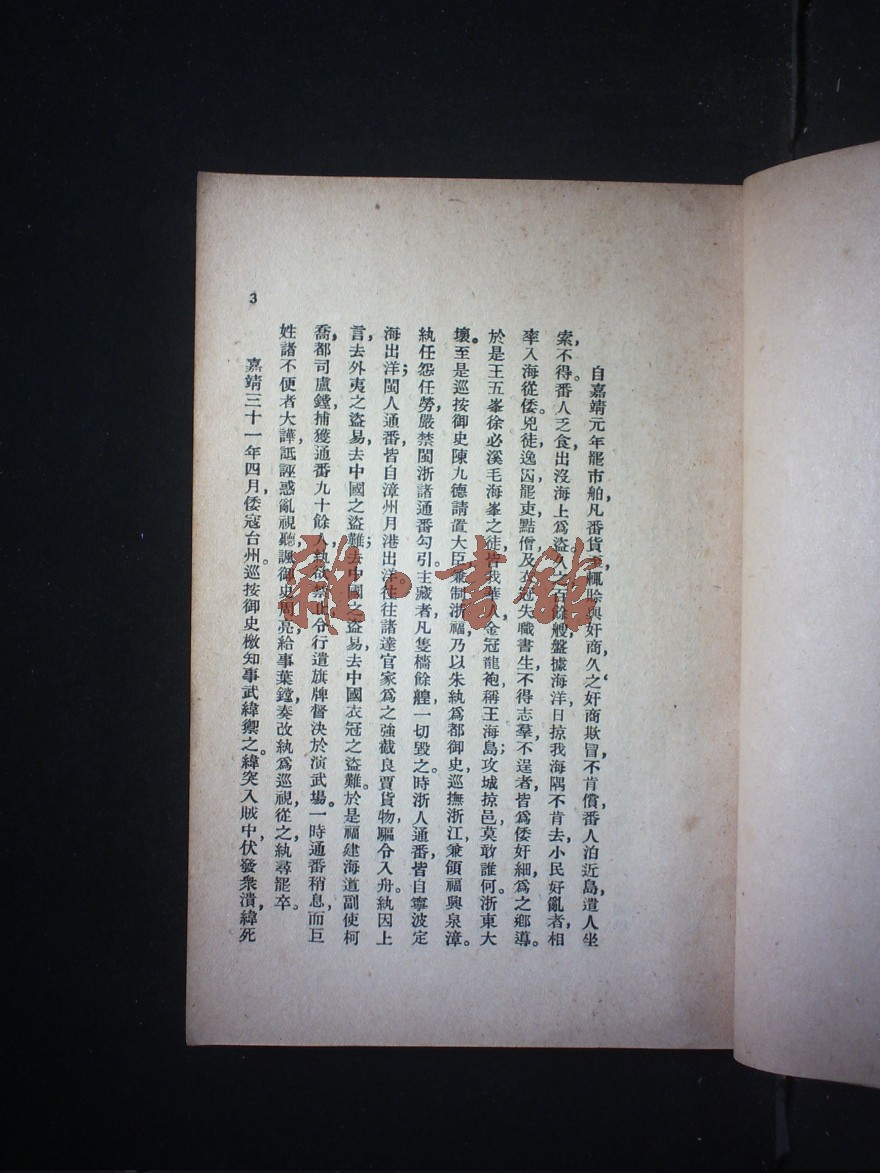 自嘉靖元年罷市舶，凡番貨至，輒賒與奸商，久之奸商欺冒，不肯償，番人泊近島，遣人坐
索，不得。番人乏食，出沒海上爲盜。久之百餘艘，盤據海洋，日掠我海隅不肯去，小民好亂者，相
率入海從倭。兇徒逸囚罷吏黠僧，及衣冠失職書生不得志羣不逞者，皆爲倭奸細，爲之鄉導。
於是王五峯徐必溪毛海峯之徒，皆我華人，金冠龍袍，稱王海島；攻城掠邑，莫敢誰何。浙東大
壞。至是巡按御史陳九德請置大臣，兼制浙福，乃以朱紈爲都御史，巡撫浙江，兼領福興泉漳。
紈任怨任勞，嚴禁閩浙諸通番勾引主藏者，凡隻檣餘艎，一切毀之。時浙人通番，皆自寧波定
海出洋；閩人通番，皆自漳州月港出洋，往往諸達官家爲之強截良賈貨物，驅令入舟。紈因上
言，去外夷之盜易，去中國之盜難；去中國之盜易，去中國衣冠之盜難。於是福建海道副使柯
喬，都司盧鏜，捕獲通番九十餘人，紈欲禁止，令行遣旗牌督決於演武場。一時通番稍息，而巨
姓諸不便者大譁，詆誣惑亂視聽，諷御史周亮，給事葉鏜，奏改紈爲巡視，從之，紈尋罷卒。
嘉靖三十一年四月，倭寇台州。巡按御史檄知事武緯禦之。緯突入賊中，伏發衆潰，緯死
3
雜·書館